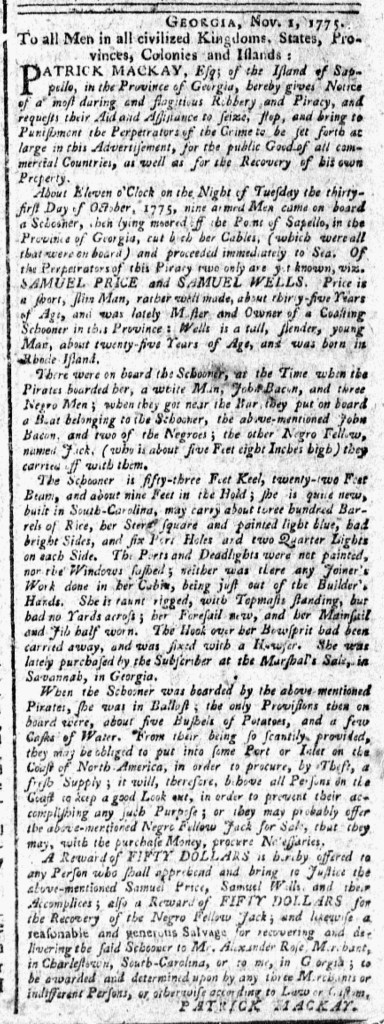 GEORGIA, Nov. 1, 1775.
To all Men in all civilized Kingdoms, States, Pro-
vinces, Colonies and Islands:
PATRICK MACKAY, Esq; of the Island of Sap-
pello, in the Province of Georgia, hereby gives Notice
of a most daring and flagitious Robbery and Piracy, and
requests their Aid and Assistance to seize, stop, and bring to
Punishment the Perpetrators of the Crime to be set forth at
large in this Advertisement, for the public Good of all com-
mercial Countries, as well as for the Recovery of his own
Property.
About Eleven o'Clock on the Night of Tuesday the thirty-
first Day of October, 1775, nine armed Men came on board
a Schooner, then lying moored off the Point of Sapello, in the
Province of Georgia, cut both her Cables, (which were all
that were on board) and proceeded immediately to Sea. Of
the Perpetrators of this Piracy two only are yet known, viz.
SAMUEL PRICE and SAMUEL WELLS. Price is
a short, slim Man, rather well made, about thirty-five Years
of Age, and was lately Master and Owner of a Coasting
Schooner in this Province: Wells is a tall, slender, young
Man, about twenty-five Years of Age, and was born in
Rhode-Island.
There were on board the Schooner, at the Time when the
Pirates boarded her, a white Man, John Bacon, and three
Negro Men; when they got near the Bar, they put on board
a Boat belonging to the Schooner, the above-mentioned John
Bacon, and two of the Negroes; the other Negro Fellow,
named Jack, (who is about five Feet eight Inches high) they
carried off with them.
The Schooner is fifty-three Feet Keel, twenty-two Feet
Beam, and about nine Feet in the Hold; she is quite new,
built in South-Carolina, may carry about three hundred Bar-
rels of Rice, her Stern square and painted light blue, had
bright Sides, and six Port Holes and two Quarter Lights
on each Side. The Ports and Deadlights were not painted,
nor the Windows sashed; neither was there any Joiner's
Work done in her Cabin, being just out of the Builder's
Hands. She is taunt rigged, with Topmasts standing, but
had no Yards across; her Foresail new, and her Mainsail
and Jib half worn. The Hook over her Bowsprit had been
carried away, and was fixed with a Hawser. She was
lately purchased by the Subscriber at the Marshal's Sale, in
Savannah, in Georgia.
When the Schooner was boarded by the above mentioned
Pirates, she was in Ballast; the only Provisions then on
board were, about five Bushels of Potatoes, and a few
Casks of Water. From their being so scantily provided,
they may be obliged to put into some Port or Inlet on the
Coast of North-America, in order to procure, by Theft, a
fresh Supply; it will, therefore, behove all Persons on the
Coast to keep a good Look out, in order to prevent their ac-
complishing any such Purpose; or they may probably offer
the above-mentioned Negro Fellow Jack for Sale, that they
may, with the purchase Money, procure Necessaries.
A Reward of FIFTY DOLLARS is hereby offered to
any Person who shall apprehend and bring to Justice the
above-mentioned Samuel Price, Samuel Wells, and their
Accomplices; also a Reward of FIFTY DOLLARS for
the Recovery of the Negro Fellow Jack; and likewise a
reasonable and generous Salvage for recovering and de-
livering the said Schooner to Mr. Alexander Rose, Merchant,
in Charlestown, South-Carolina, or to me, in Georgia; to
be awarded and determined upon by any three Merchants or
indifferent Persons, or otherwise according to Law or Custom.
PATRICK MACKAY.